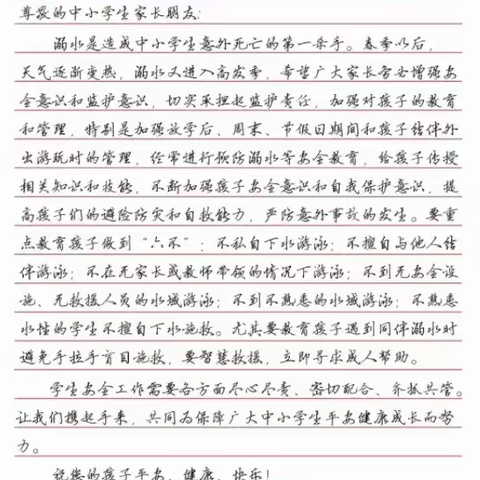 尊敬的中小学生家长朋友:
溺水是造成中小学生意外死亡的第一杀手。春季以后,
天气逐渐变热,溺水又进入高发季,希望广大家长务必增强安
全意识和监护意识,切实承担起监护责任,加强对孩子的教育
和管理,特别是加强放学后、周末、节假日期间和孩子结伴外
出游玩时的管理,经常进行预防溺水等安全教育,给孩子传授
相关知识和技能,不断加强孩子安全意识和自我保护意识,提
高孩子们的避险防灾和自救能力,严防意外事故的发生。要重
点教育孩子做到“六不”:不私自下水游泳;不擅自与他人结
伴游泳;不在无家长或教师带领的情况下游泳;不到无安全设
施、无救援人员的水域游泳;不到不熟悉的水域游泳;不熟悉
水性的学生不擅自下水施救。尤其要教育孩子遇到同伴溺水时
避免手拉手盲目施救,要智慧救援,立即寻求成人帮助。
学生安全工作需要各方面尽心尽责、密切配合、齐抓共管。
让我们携起手来,共同为保障广大中小学生平安健康成长而努
力。
祝您的孩子平安、健康、快乐!